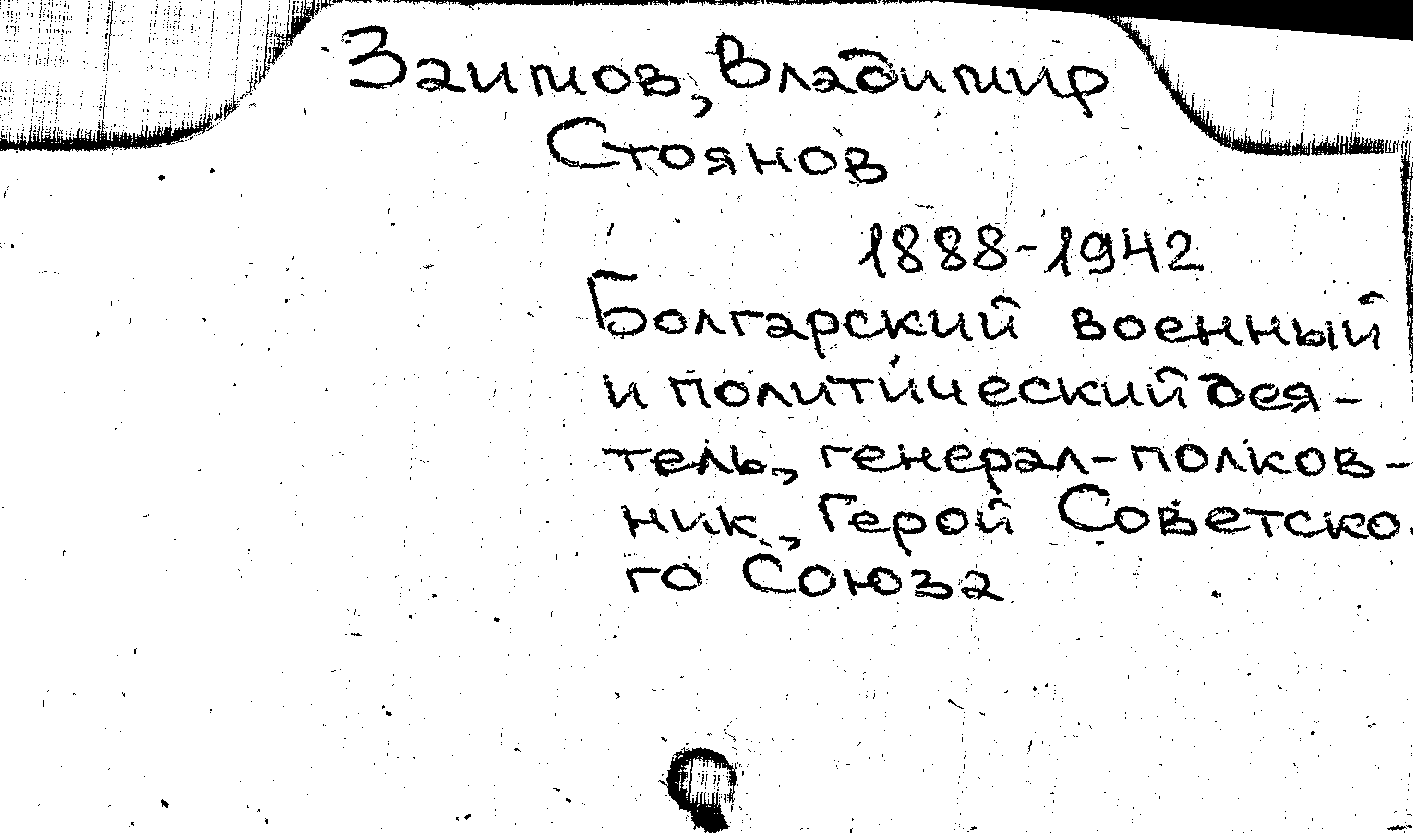 Заимов, Владимир
Стоянов
1888-1942
Болгарский военный
и политический дея-
тель, генерал-полков-
ник, Герой Советско-
го Союза